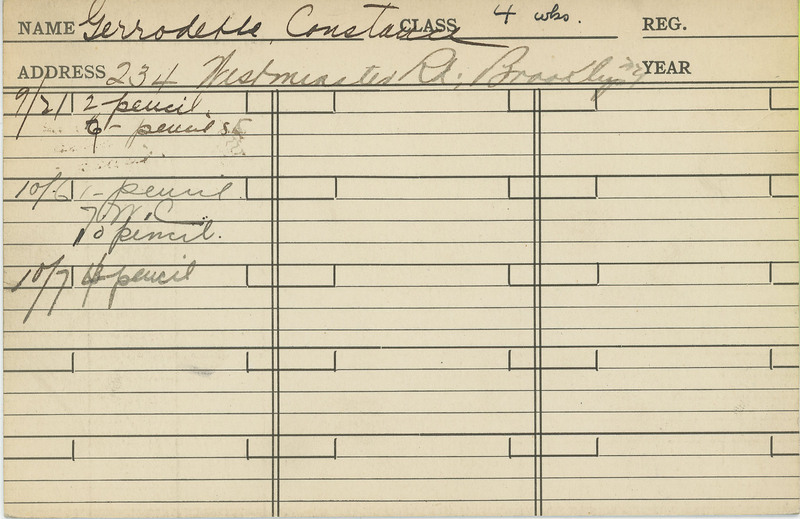 NAME Gerrodette, Constance CLASS 4 wks. REG.
ADDRESS 234 Westminster Rd, Brooklyn NY YEAR
9/21 2-pencil.
6- pencil
10/6 1- pencil
7 W.C.
10 pencil.
10/7 4 pencil